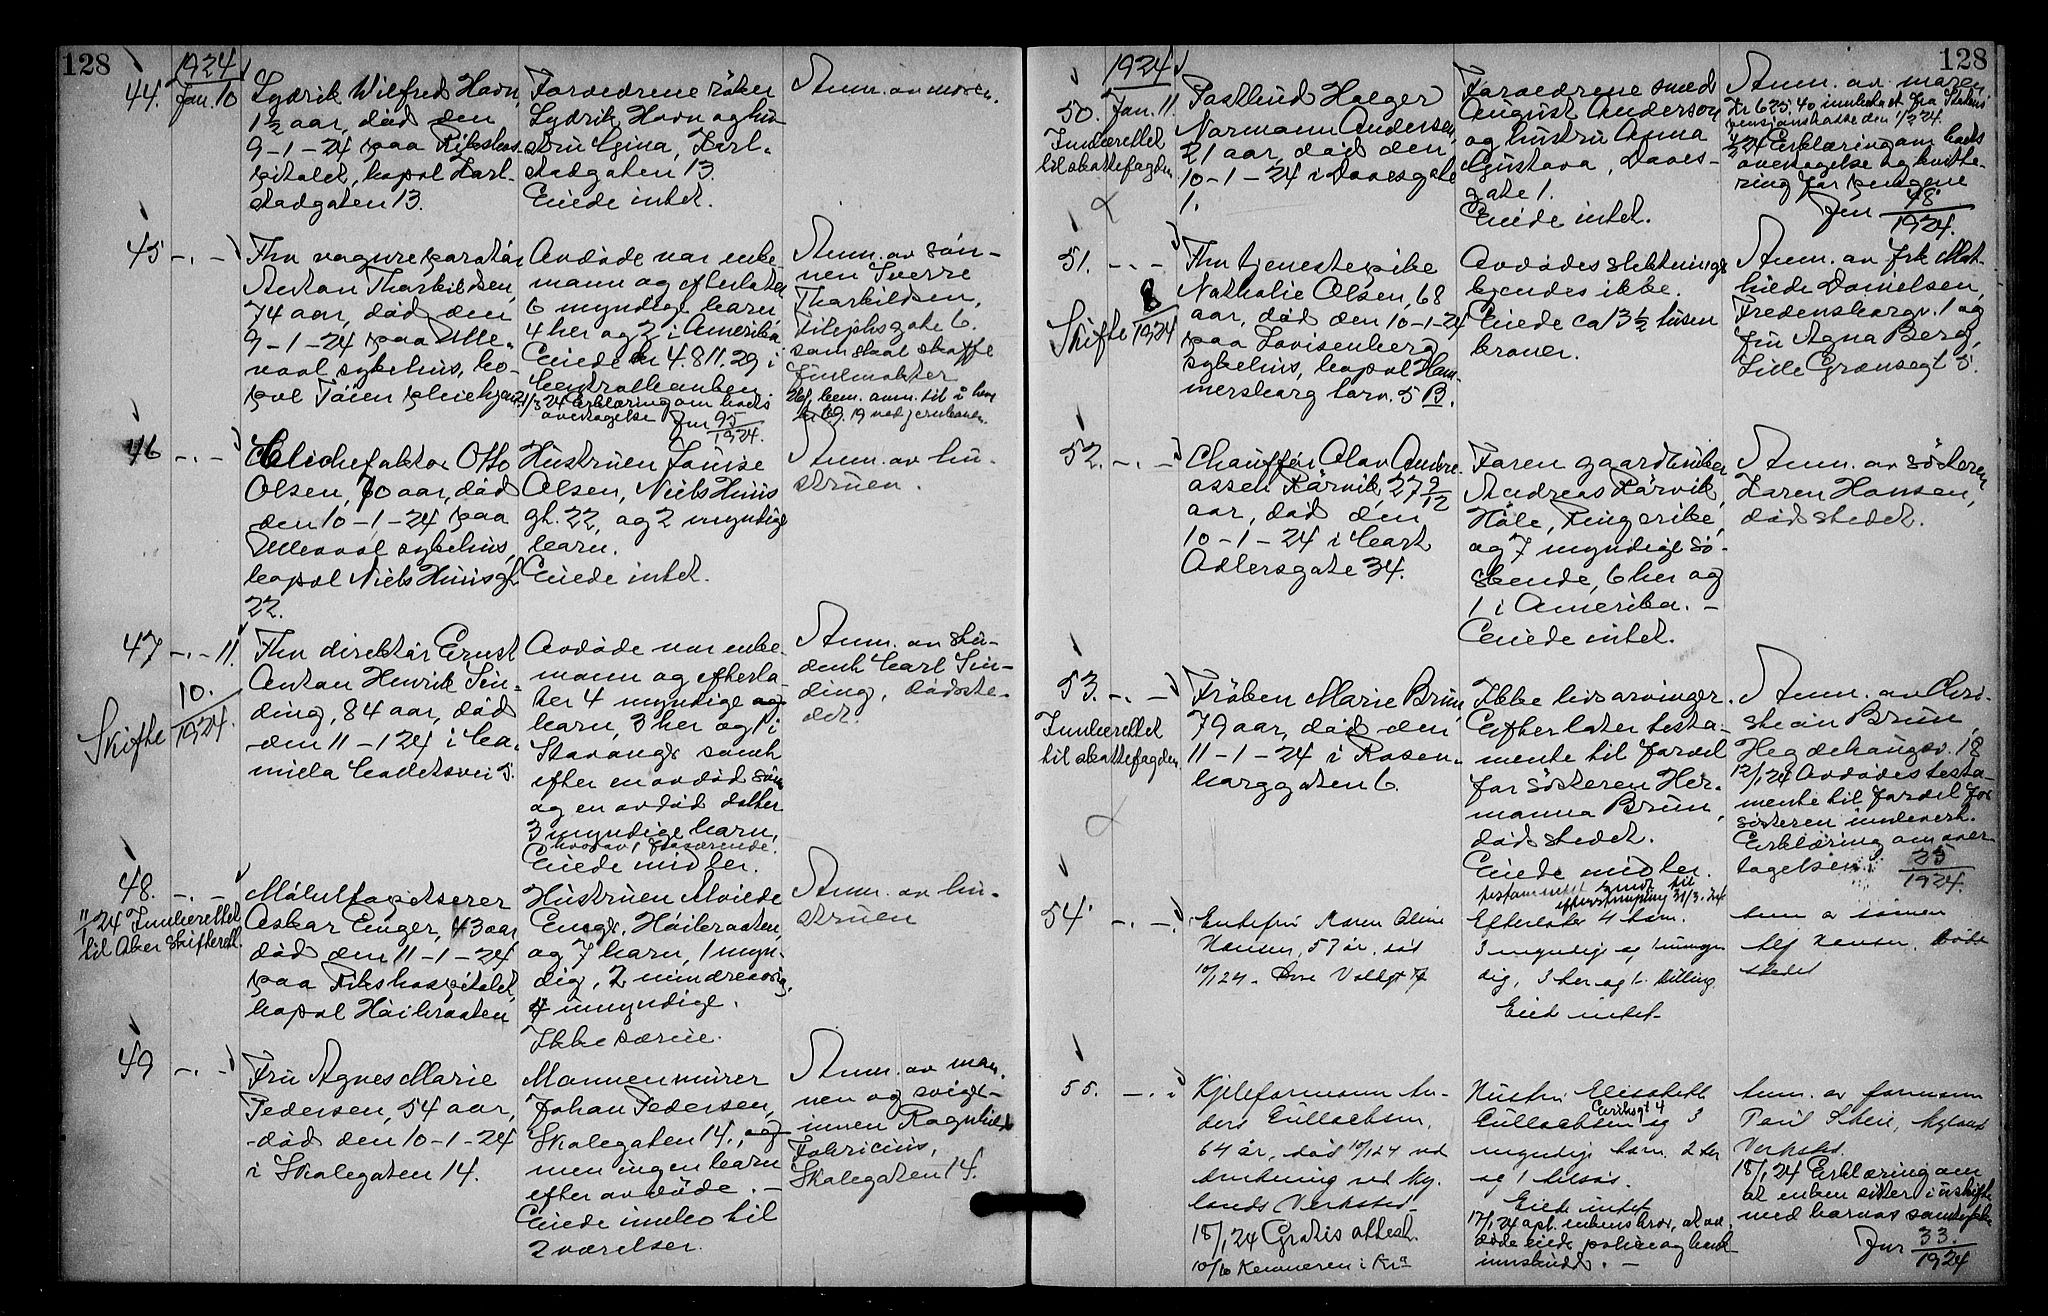 128
1924
44. Jan. 10
Lydrik Wilfred Havn,
1½ aar, død den
9-1-24 paa Rikshos-
pitalet, bopæl Karl-
stadgaten 13.
Forældrene
Lydrik Havn og hu-
stru Gina, Karl-
stadgaten 13.
Eiede intet.
Anm. av moren.
45 -.-
Fhv vognreparatør
Anton Thorkildsen,
74 aar, død den
9-1-24 paa Ulle-
vaal sykehus, bo-
pæl Tøien pleiehjem
Avdøde var enke-
mann og efterlater
6 myndige barn,
4 her og 2 i Amerika.
Eiede kr 4.811.29 i
Centralbanken
21/3 24 Erklæring om boets
overtagelse Jnr 95/1924.
Anm. av søn-
nen Sverre
Thorkildsen,
gate 6.
som skal skaffe
fuldmakter
46 -.-
Clichefaktor Otto
Olsen, 70 aar, død
den 10-1-24 paa
Ullevaal sykehus,
bopæl Niels Huusgt.
22.
Hustruen Louise
Olsen, Niels Huus
gt. 22, og 2 myndige
barn.
Eiede intet.
Anm. av hu-
struen.
47 -.- 11.
Skifte 10./1924.
Fhv direktør Ernst
Anton Henrik Sin-
ding, 84 aar, død
den 11-1 24 i Ca-
milla Colletsvei 5.
Avdøde var enke-
mann og efterla-
ter 4 myndige
barn, 3 her og 1 i
Stavanger samt
efter en avdød søn
og en avdød datter
3 myndige barn,
hvorav 1 fraværende.
Eiede midler.
Anm. av stu-
dent Carl Sin-
ding, dødste-
det.
48. -.-
11/1 24 Innberettet
til Aker skifterett.
Møbeltapetserer
Oskar Enger, 43 aar,
død den 11-1-24
paa Rikshospitalet,
bopæl Høibraaten
Hustruen Alvilde
Enger, Høibraaten,
og 7 barn, 1 myn-
dig, 2 mindreaarig,
4 umyndige.
Ikke særeie.
Anm. av hu-
struen
49 -.-
Fru Agnes Marie
Pedersen, 54 aar,
død den 10-1-24
i Skolegaten 14.
Mannen murer
Johan Pedersen,
Skolegaten 14, og
men ingen barn
efter avdøde. -
Eiede innbo til
2 værelser.
Anm. av man-
nen og svige-
innen Ragnhild
Fabricius,
Skolegaten 14.
128
1924
50. Jan. 11
Innberettet
til skattefogden
Postbud Holger
Normann Andersen,
21 aar, død den
10-1-24 i Daaesgate
1.
Forældrene smed
August Anderson
og hustru Anna
Gustava, Daaes-
gate 1.
Eiede intet.
Anm. av moren
Kr 625.40 innbetalt fra Statens
pensjonskasse den
24 Erklæring om boets
overtagelse og kvitte-
ring for pengene
Jnr 48/1924.
51. -.-
Skifte 8/1924
Fhv tjenestepike
Nathalie Olsen, 68
aar, død den 10-1-24
paa Lovisenberg
sykehus, bopæl Ham-
mersborg torv. 5 B.
Avdødes slektninger
kjendes ikke.
Eiede ca 13½ tusen
kroner.
Anm. av frk Mat-
hilde Danielsen,
Fredensborgv. 1 og
fru Agna Berg,
Lille Grænsegt 5.
52. -.-
Chauffør Olav Andre-
assen Kårvik, 27 9/12
aar, død den
10-1-24 i Cort
Adlersgate 34.
Faren gaardbruker
Andreas Kårvik,
Hole, Ringerike,
og 7 myndige sø-
skende, 6 her og
1 i Amerika. -
Eiede intet.
Anm. av søsteren
Karen Hansen,
dødsstedet.
53. -.-
Innberettet
til skattefogden.
Frøken Marie Brun,
79 aar, død den
11-1-24 i Rosen-
borggaten 6.
Ikke livsarvinger.
Efterlater testa-
mente til fordel
for søsteren Her-
manna Brun,
dødsstedet.
Eiede midler.
testamentet sendt til
efterstempling 31/3.24
Anm. av Chri-
stian Brun,
Hegdehaugsv. 18
12/1 24 Avdødes testa-
mente til fordel for
søsteren innlevert.
Erklæring om over-
tagelsen. 25/1924.
54 -.-
Enkefru Karen Oline
Hansen, 57 år, død
10/1 24. Øvre Voldgt 7
Efterlater 4 barn.
3 myndige og 1 umyn-
dig, 3 her og 1 i Killing.
Eiet intet.
Anm. av sønnen
Alf Hansen, døds-
stedet
55. -.-
Kjeleformann An-
ders Gulbrandsen,
64 år, død 10/1 24 ved
drukning ved Ny-
lands Verksted.
18/1 24 Gratis attest.
10/10 Kemneren i Kr.a
Hustru Elisabeth
Eiriksgt 4
Gulbrandsen og 3
myndige barn. 2 her
og 1 tilsjøs.
Eiet intet.
17/1 24 opl. enkens bror, at av-
døde eide polise og bank-
innskudd. -
Anm. av formann
Paul Skeie, Nylands
Verksted.
18/1 24 Erklæring om
at enken sitter i uskifte
med barnas samtykke
Jnr 33./1924